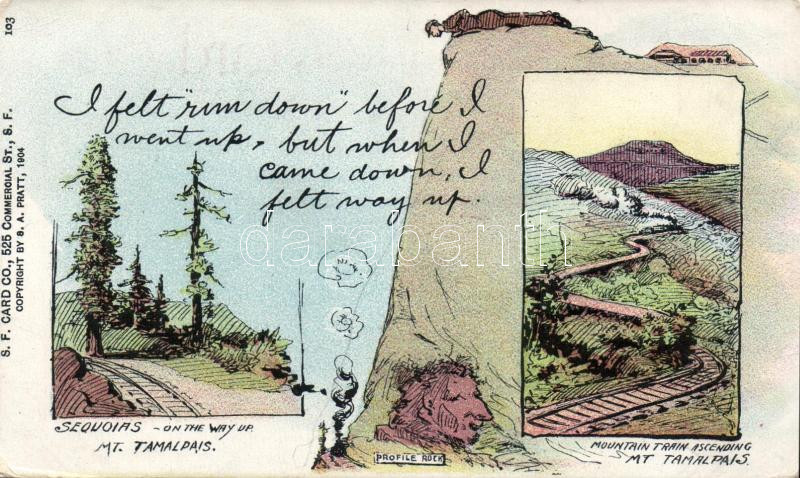 103
S. F. CARD CO., 525 COMMERCIAL ST., S. F.
COPYRIGHT BY S. A. PRATT, 1904
I felt "run down" before I
went up, but when I
came down, I
felt way up.
darabanth
SEQUOIAS - ON THE WAY UP.
MT. TAMALPAIS.
PROFILE ROCK
MOUNTAIN TRAIN ASCENDING
MT TAMALPAIS.